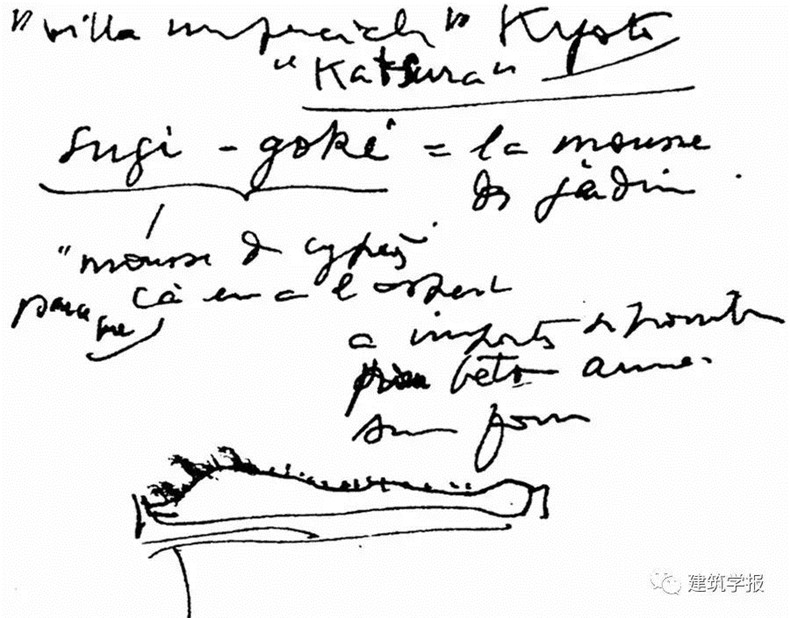 "villa impériale" Kyoto
"Katsura"
sugi - goké = la mousse
des jardin
"mousse de cyprès"
parce que ça en a l'aspect
a importer
béton arme
建筑学报